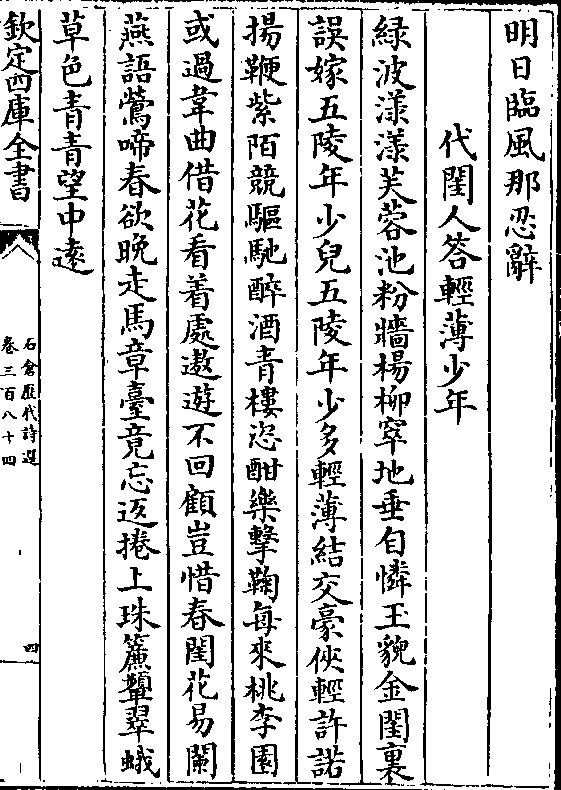 明日臨風那忍辭
代閨人答輕薄少年
緑波漾漾芙蓉池粉牆楊柳窣地垂自憐玉貌金閨裏
誤嫁五陵年少兒五陵年少多輕薄結交豪俠輕許諾
揚鞭紫陌競驅馳醉酒青樓恣酣樂擊鞠每來桃李園
或過韋曲借花看着處遨遊不回顧豈惜春閨花易闌
燕語鶯啼春欲晩走馬章臺竟忘返捲上珠簾顰翠蛾
草色青青望中逺
欽定四庫全書
石倉歷代詩選
卷三百八十四
四